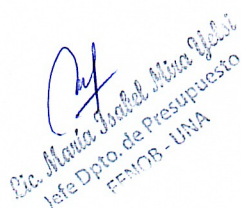 Lic. María Isabel Mira Yelsi
Jefe Dpto. de Presupuesto
FEMOB - UNA